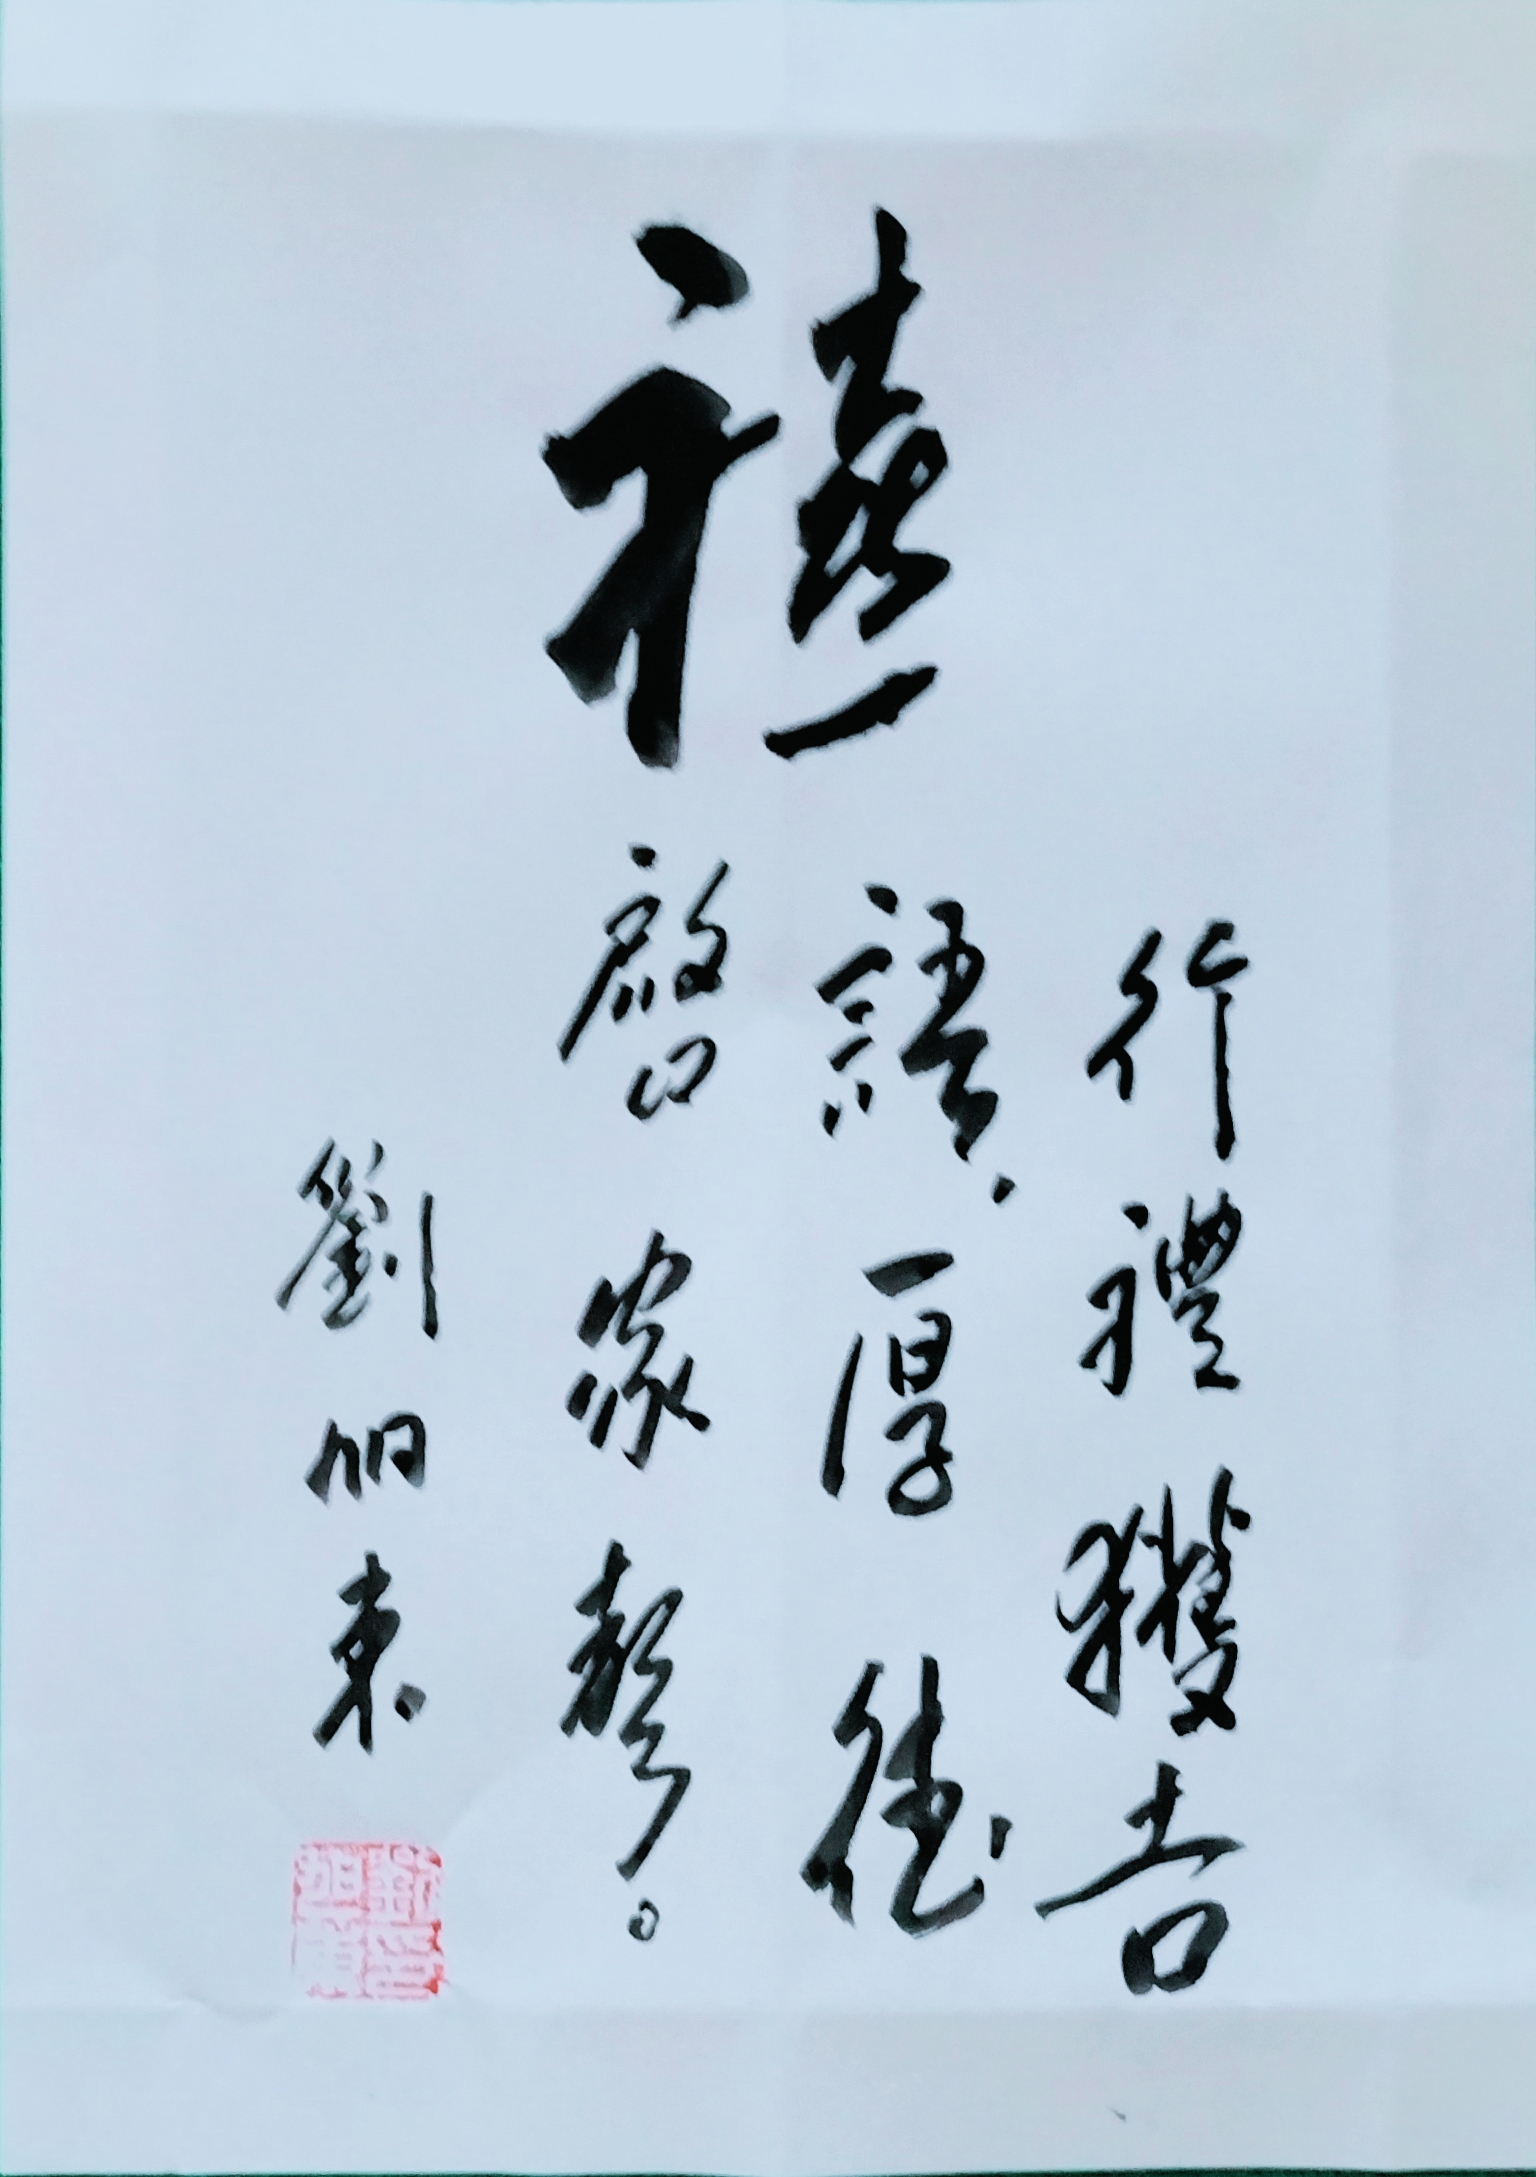 禧
行禮獲吉
語，厚德
啓家聲。
劉旭東